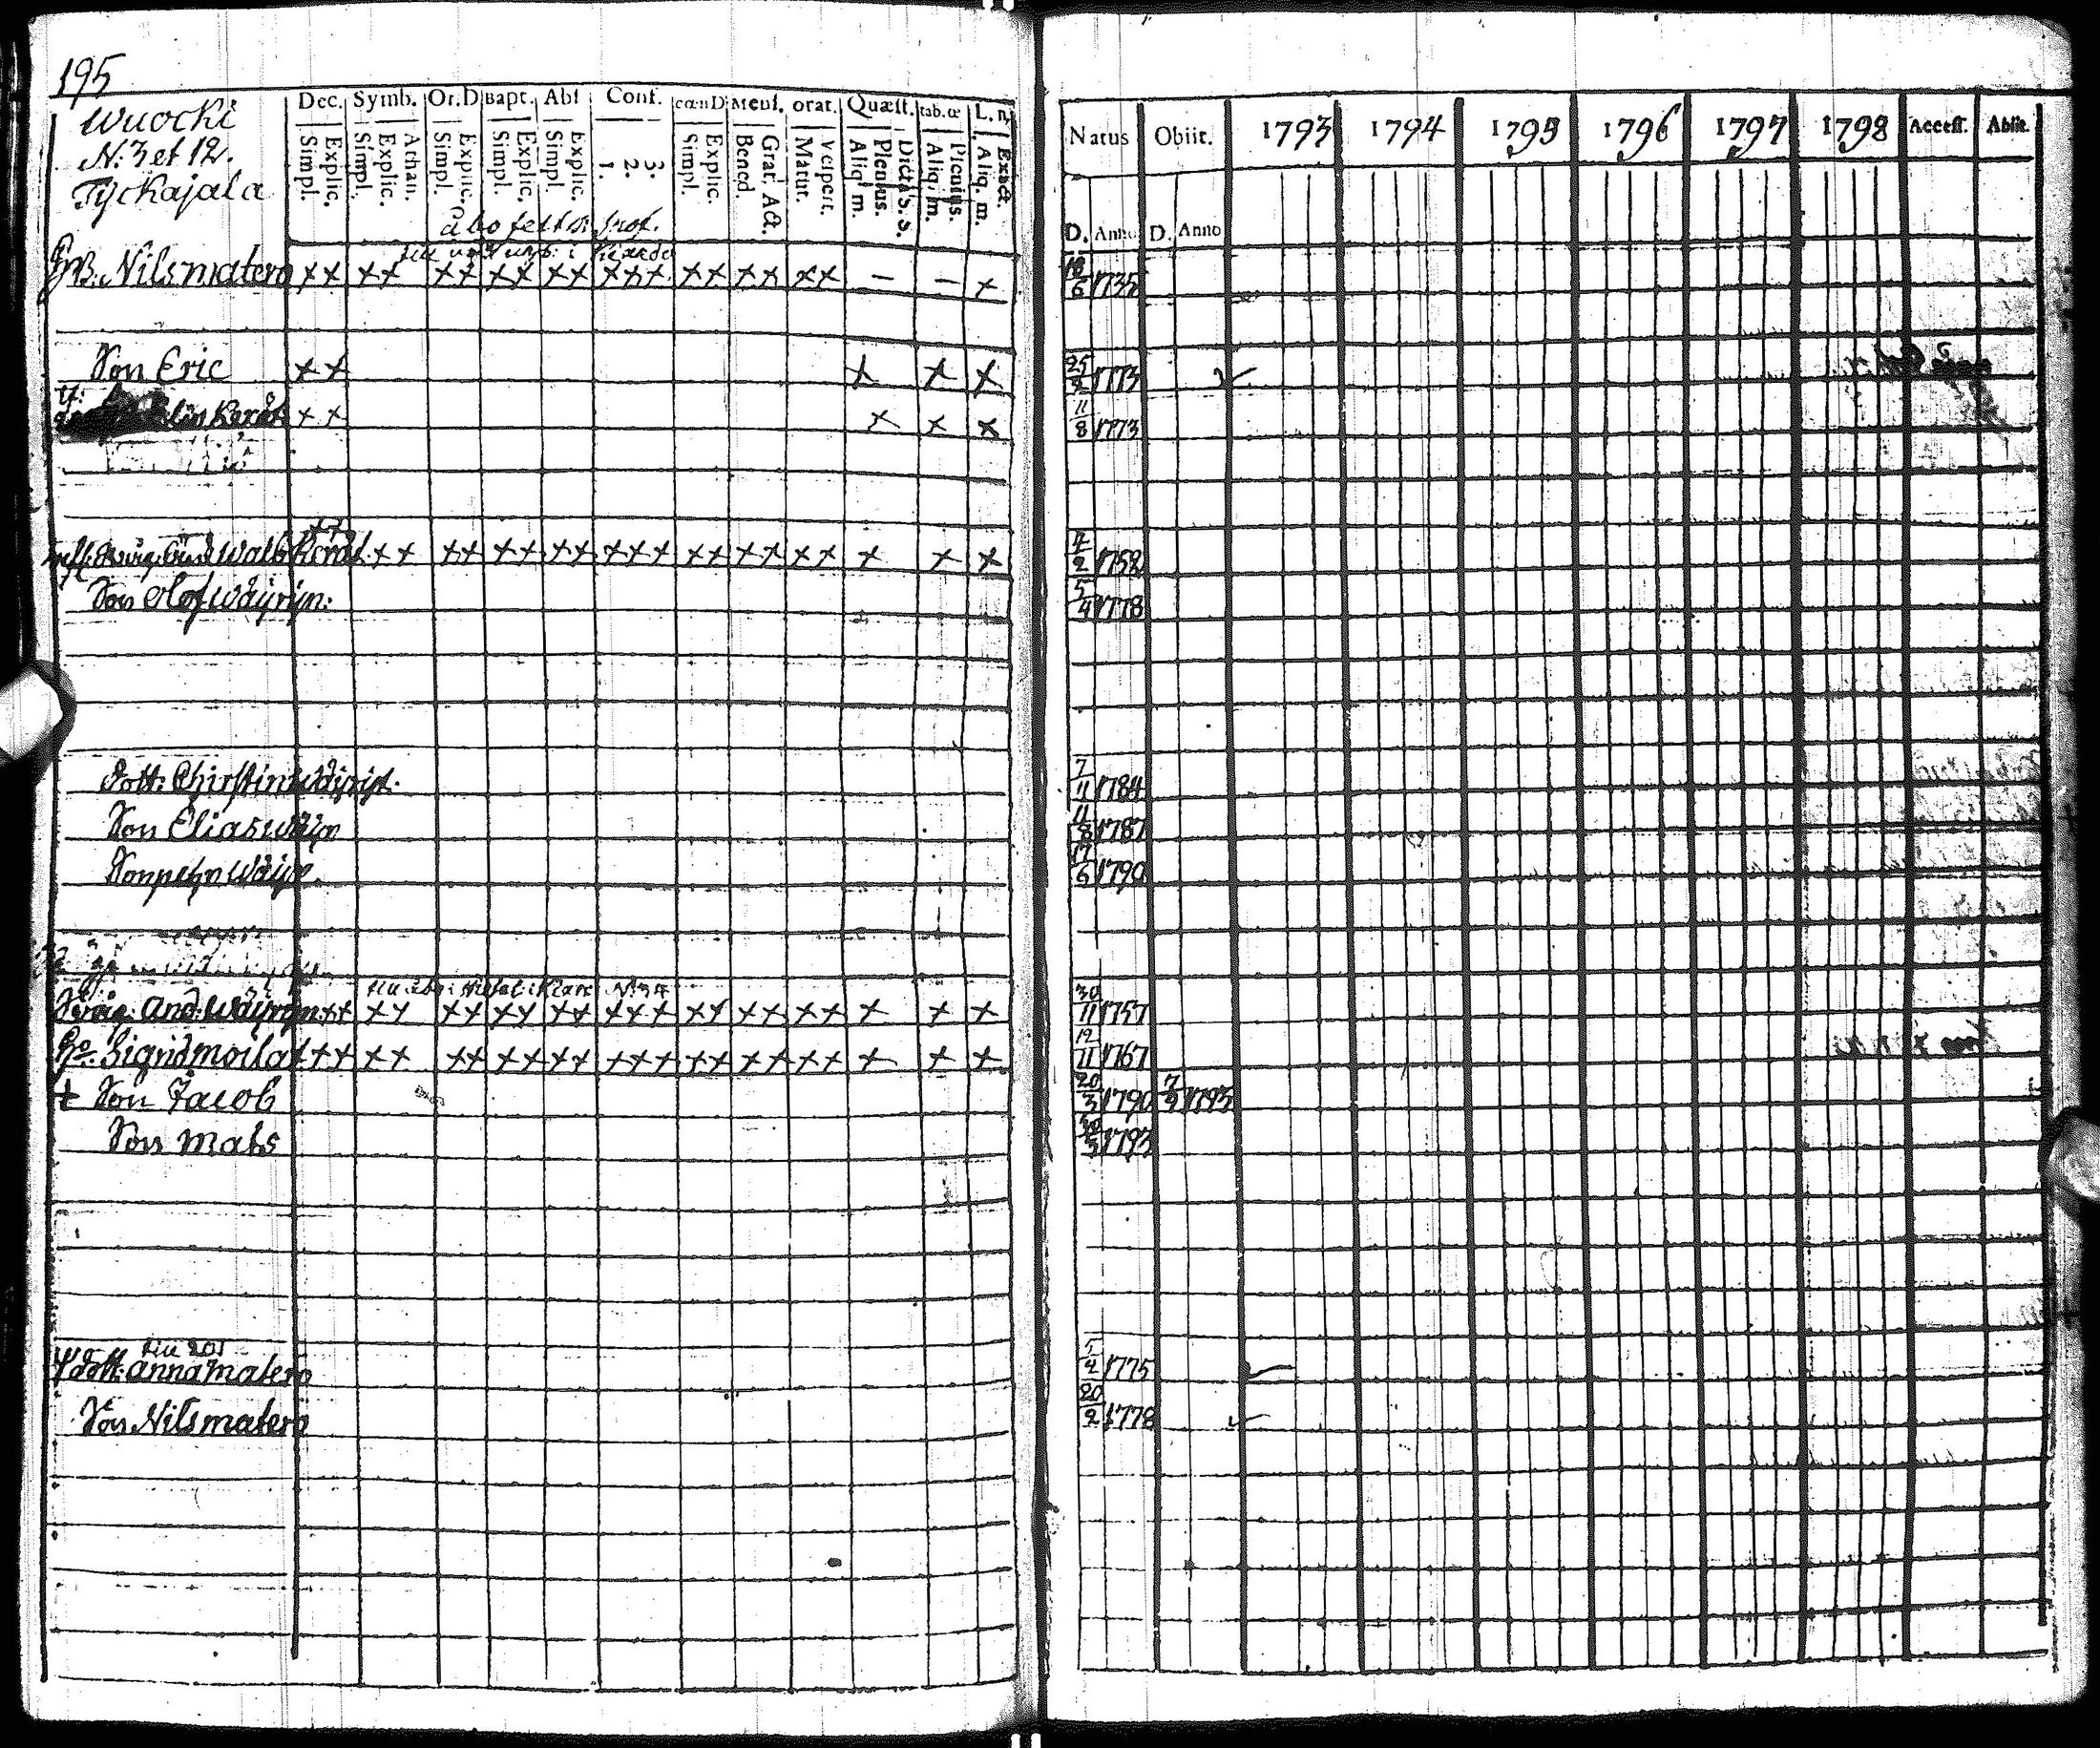 195
Wuocki
N: 3 et 12.
Tyckajala
Dec. Symb. Or. D Bapt. Abs Conf. cœn D Mens. orat. Quæst. tab. œ L. n.
Simpl. Explic. Simpl. Explic. Athan. Simpl. Explic. Simpl. Explic. Simpl. Explic. 1. 2. 3. Simpl. Explic. Bened. Grat. Act. Matut. Vespert. Aliq. m. Plenius. Dicta S. S. Aliq. m. Plenius. Aliq. m. Exact.
Natus Obiit. 1793 1794 1795 1796 1797 1798 Access. Abiit.
D. Anno D. Anno
Nils Matero ×× ×× ×× ×× ×× ××× ×× ×× ×× — — × 6 1735
Son Eric ×× × × × 25/2 1773
×× × × × 11/8 1773
×× ×× ×× ×× ××× ×× ×× ×× × × × 4/2 1752
Son Olof Wäyryn: 5/4 1778
Dott: Christin Wäyryt. 7/11 1784
Son Elias Wäyn 11/8 1787
Son Wäyn 17/6 1790
And: Wäyryn ×× ×× ×× ×× ×× ××× ×× ×× ×× × × × 30/11 1757
Ho. Sigrid Moila ××× ×× ×× ×× ×× ××× ×× ×× ×× × × × 12/11 1767
† Son Jacob 20/3 1790 7/9 1793
Son Mats 30/3 1793
till 201
dott: Anna Matero 5/4 1775
Son Nils Matero 20/2 1778